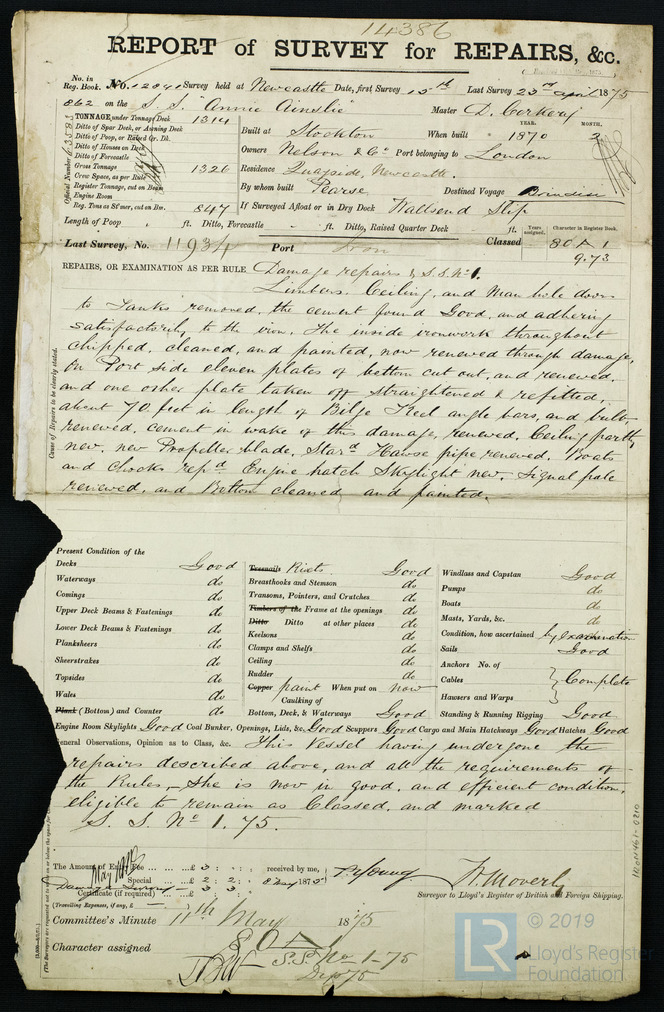 14386
REPORT of SURVEY for REPAIRS, &c.
No. in Reg. Book. No. 12091 Survey held at Newcastle Date, first Survey 15th Last Survey 23rd April 1875
862 on the S.S. "Annie Ainslie" Master D. Corkery
TONNAGE under Tonnage Deck 1314
Ditto of Spar Deck, or Awning Deck
Ditto of Poop, or Raised Qr. Dk.
Ditto of Houses on Deck
Ditto of Forecastle
Gross Tonnage 1326
Crew Space, as per Rule
Register Tonnage, cut on Beam
Engine Room
Reg. Tons as St'mer, cut on Bm. 847
Official Number
YEAR. MONTH.
Built at Stockton When built 1870 2
Owners Nelson & Co Port belonging to London
Residence Quayside, Newcastle.
By whom built Pearse Destined Voyage Brindisi
If Surveyed Afloat or in Dry Dock Wallsend Slip
Length of Poop ft. Ditto, Forecastle ft. Ditto, Raised Quarter Deck ft.
Years assigned. Character in Register Book.
Last Survey, No. 11934 Port Iron Classed 80 A 1
9.73
REPAIRS, OR EXAMINATION AS PER RULE Damage repairs & S.S. No 1.
Limbers. Ceiling, and Man hole doors
to Tanks removed, the cement found Good, and adhering
satisfactorily to the iron. The inside ironwork throughout
chipped, cleaned, and painted, now renewed through damage,
On Port side eleven plates of bottom cut out, and renewed,
and one other plate taken off straightened & refitted,
about 70 feet in length of Bilge Keel angle bars, and bulb,
renewed, cement in wake of this damage, renewed, Ceiling partly
new, new Propeller blade, Stard Hawse pipe renewed. Boats
and Chocks repd Engine hatch Skylight new. Signal pole
renewed, and Bottom cleaned and painted.
Cause of Repairs to be clearly stated.
Present Condition of the
Decks Good
Waterways do
Comings do
Upper Deck Beams & Fastenings do
Lower Deck Beams & Fastenings do
Planksheers do
Sheerstrakes do
Topsides do
Wales do
Plank (Bottom) and Counter do
Treenails Rivets Good
Breasthooks and Stemson do
Transoms, Pointers, and Crutches do
Timbers of the Frame at the openings do
Ditto Ditto at other places do
Keelsons do
Clamps and Shelfs do
Ceiling do
Rudder do
Copper paint When put on now
Caulking of
Bottom, Deck, & Waterways Good
Windlass and Capstan Good
Pumps do
Boats do
Masts, Yards, &c. do
Condition, how ascertained by examination
Sails Good
Anchors No. of
Cables Complete
Hawsers and Warps
Standing & Running Rigging Good
Engine Room Skylights Good Coal Bunker, Openings, Lids, &c. Good Scuppers Good Cargo and Main Hatchways Good Hatches Good
General Observations, Opinion as to Class, &c. This Vessel having undergone the
repairs described above, and all the requirements of
the Rules, She is now in good, and efficient condition,
eligible to remain as Classed, and marked
S. S. No 1. 75.
The Amount of Entry Fee £ 3 : : received by me,
Special £ 2 : 2 : 8 May 1875
Damage Survey
Certificate (if required) £ 3 : 3
(Travelling Expenses, if any, £ )
Surveyor to Lloyd's Register of British and Foreign Shipping.
Committee's Minute 11th May 1875
Character assigned 80 A 1
S.S. No 1-75
IRON467-0210
© 2019
LR
Lloyd's Register
Foundation